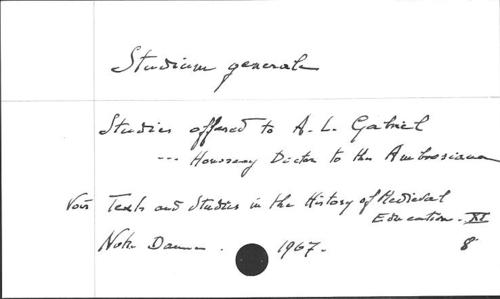 Studium generale
Studies offered to A. L. Gabriel
--- Honorary Doctor to the Ambrosiana
Voir Texts and Studies in the History of Medieval
Education. XI
Notre Dame. 1967. 8°